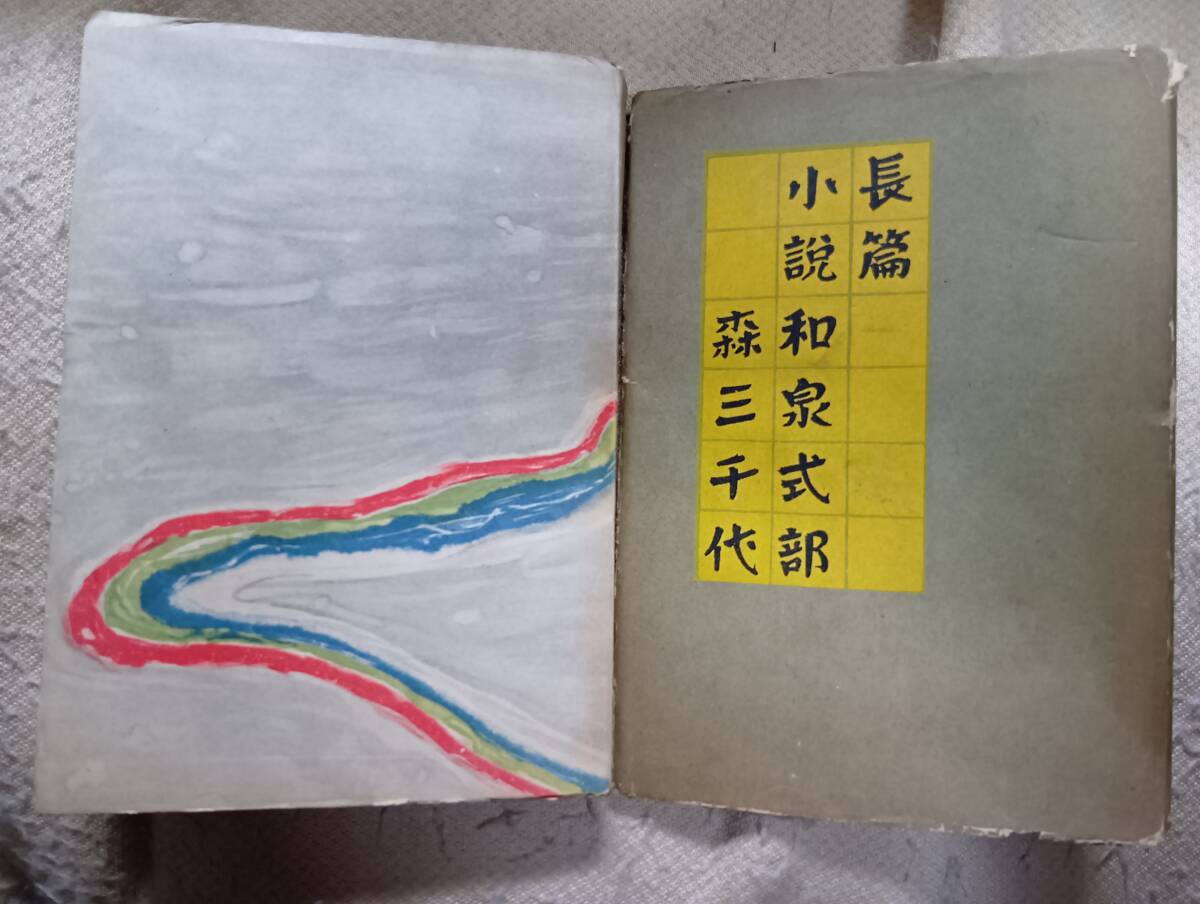 長篇
小說和泉式部
森三千代